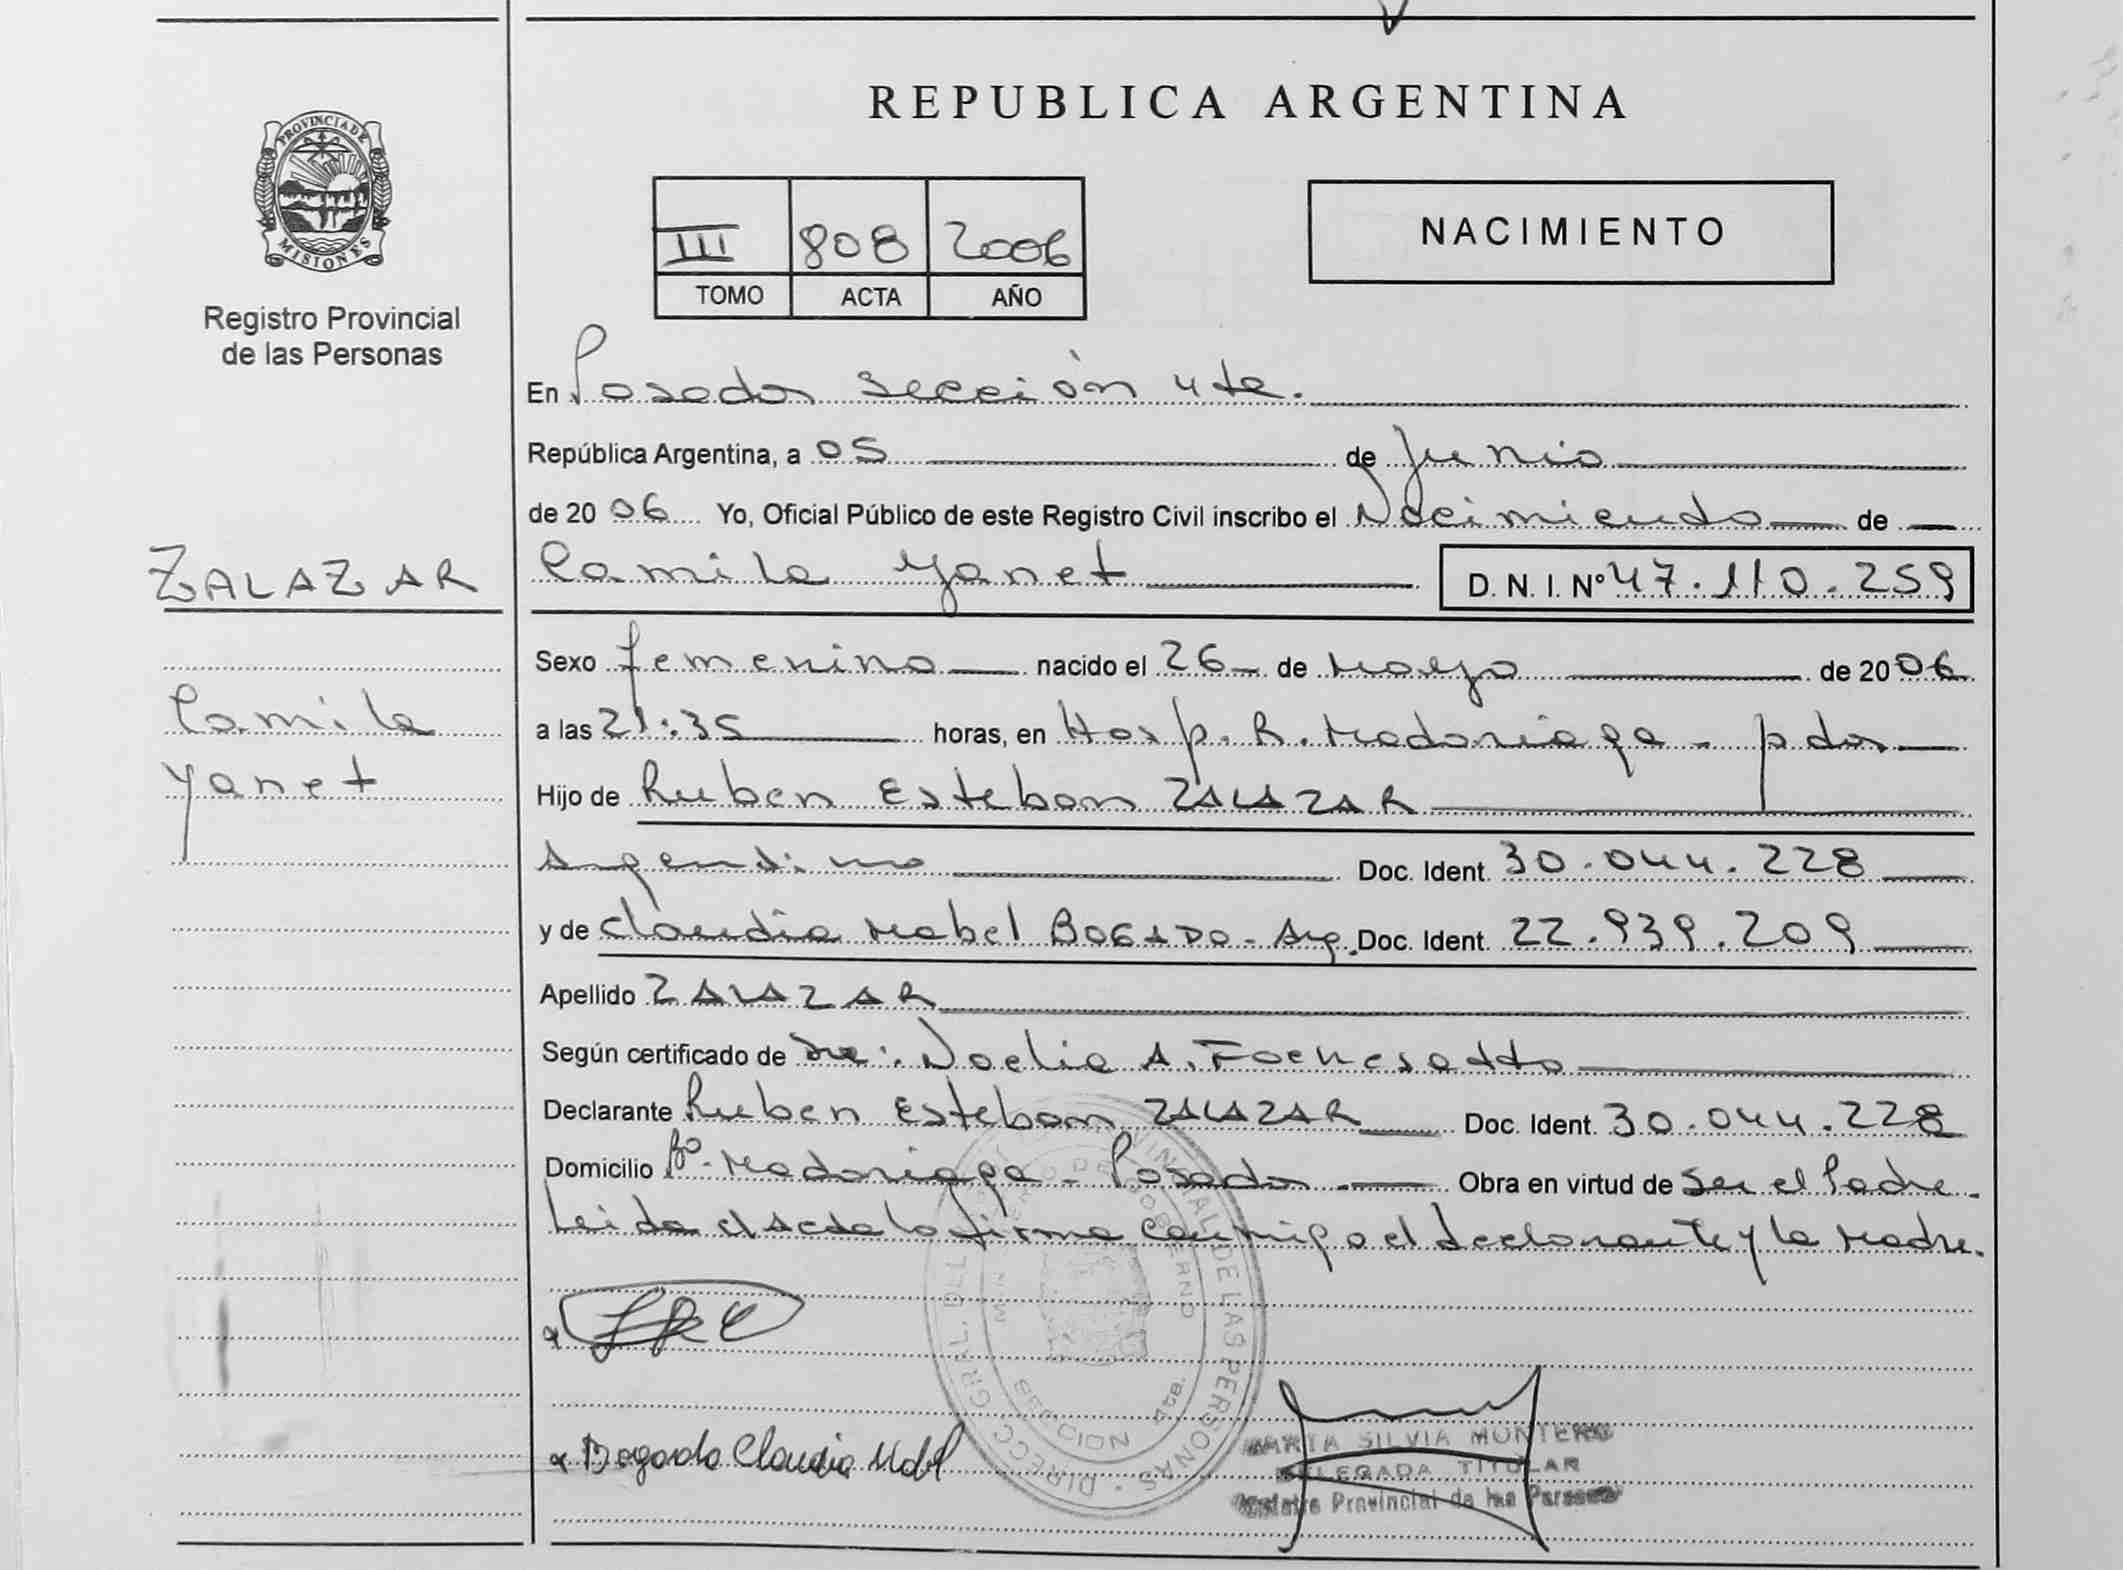 REPUBLICA ARGENTINA
PROVINCIA DE
MISIONES
Registro Provincial
de las Personas
III 808 2006
TOMO ACTA AÑO
NACIMIENTO
En Posadas sección 4ta.
República Argentina, a 05 de Junio
de 2006 Yo, Oficial Público de este Registro Civil inscribo el Nacimiento de
ZALAZAR
Camila Yanet D. N. I. Nº 47.110.259
Sexo femenino nacido el 26 de Mayo de 2006
Camila
Yanet
a las 21:35 horas, en Hosp. R. Madariaga - pdas
Hijo de Ruben Esteban ZALAZAR
Argentino Doc. Ident. 30.044.228
y de Claudia Mabel BOGADO - Arg. Doc. Ident. 22.939.209
Apellido ZALAZAR
Según certificado de Dra: Noelia A.
Declarante Ruben Esteban ZALAZAR Doc. Ident. 30.044.228
Domicilio Bº. Madariaga - Posadas Obra en virtud de ser el Padre.
Leida el Acta la firma conmigo el declarante y la Madre.
DIRECC. GRAL. DEL PROVINCIAL DE LAS PERSONAS
Bogado Claudia Mabel
MARTA SILVIA MONTERO
DELEGADA TITULAR
Registro Provincial de las Personas